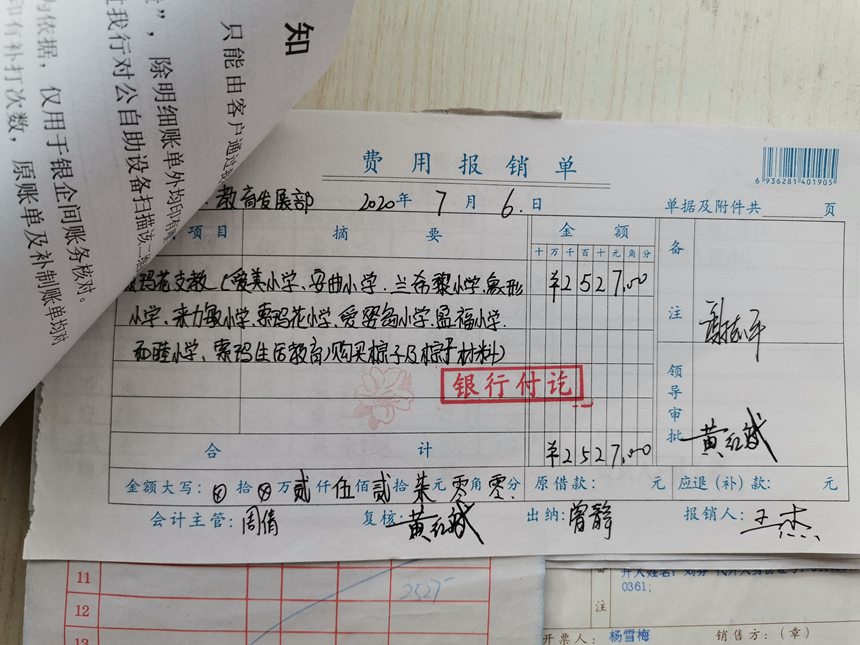 知
只能由客户通过
”，除明细账单外均印有
我行对公自助设备扫描该二
为依据，仅用于银企间账务核对。
印有补打次数，原账单及补制账单均对
费用报销单
6 936281 401905
教育发展部 2020年 7月 6.日 单据及附件共 页
项目 摘要 金额 备注
十万千百十元角分
玛花支教（爱美小学、安曲小学、兰希黎小学、象形 ¥2527.00
小学、来力敏小学、索玛花小学、爱婴岛小学、盈福小学、
和睦小学、索玛生活教育）购买粽子及粽子材料）
银行付讫
领导审批 黄红斌
合计 ¥2527.00
金额大写：⊗拾⊗万贰仟伍佰贰拾柒元零角零分 原借款： 元 应退（补）款： 元
会计主管：周倩 复核：黄红斌 出纳：曾静 报销人：王杰
11
2527
12
13
0361;
注
开票人：杨雪梅 销售方：（章）